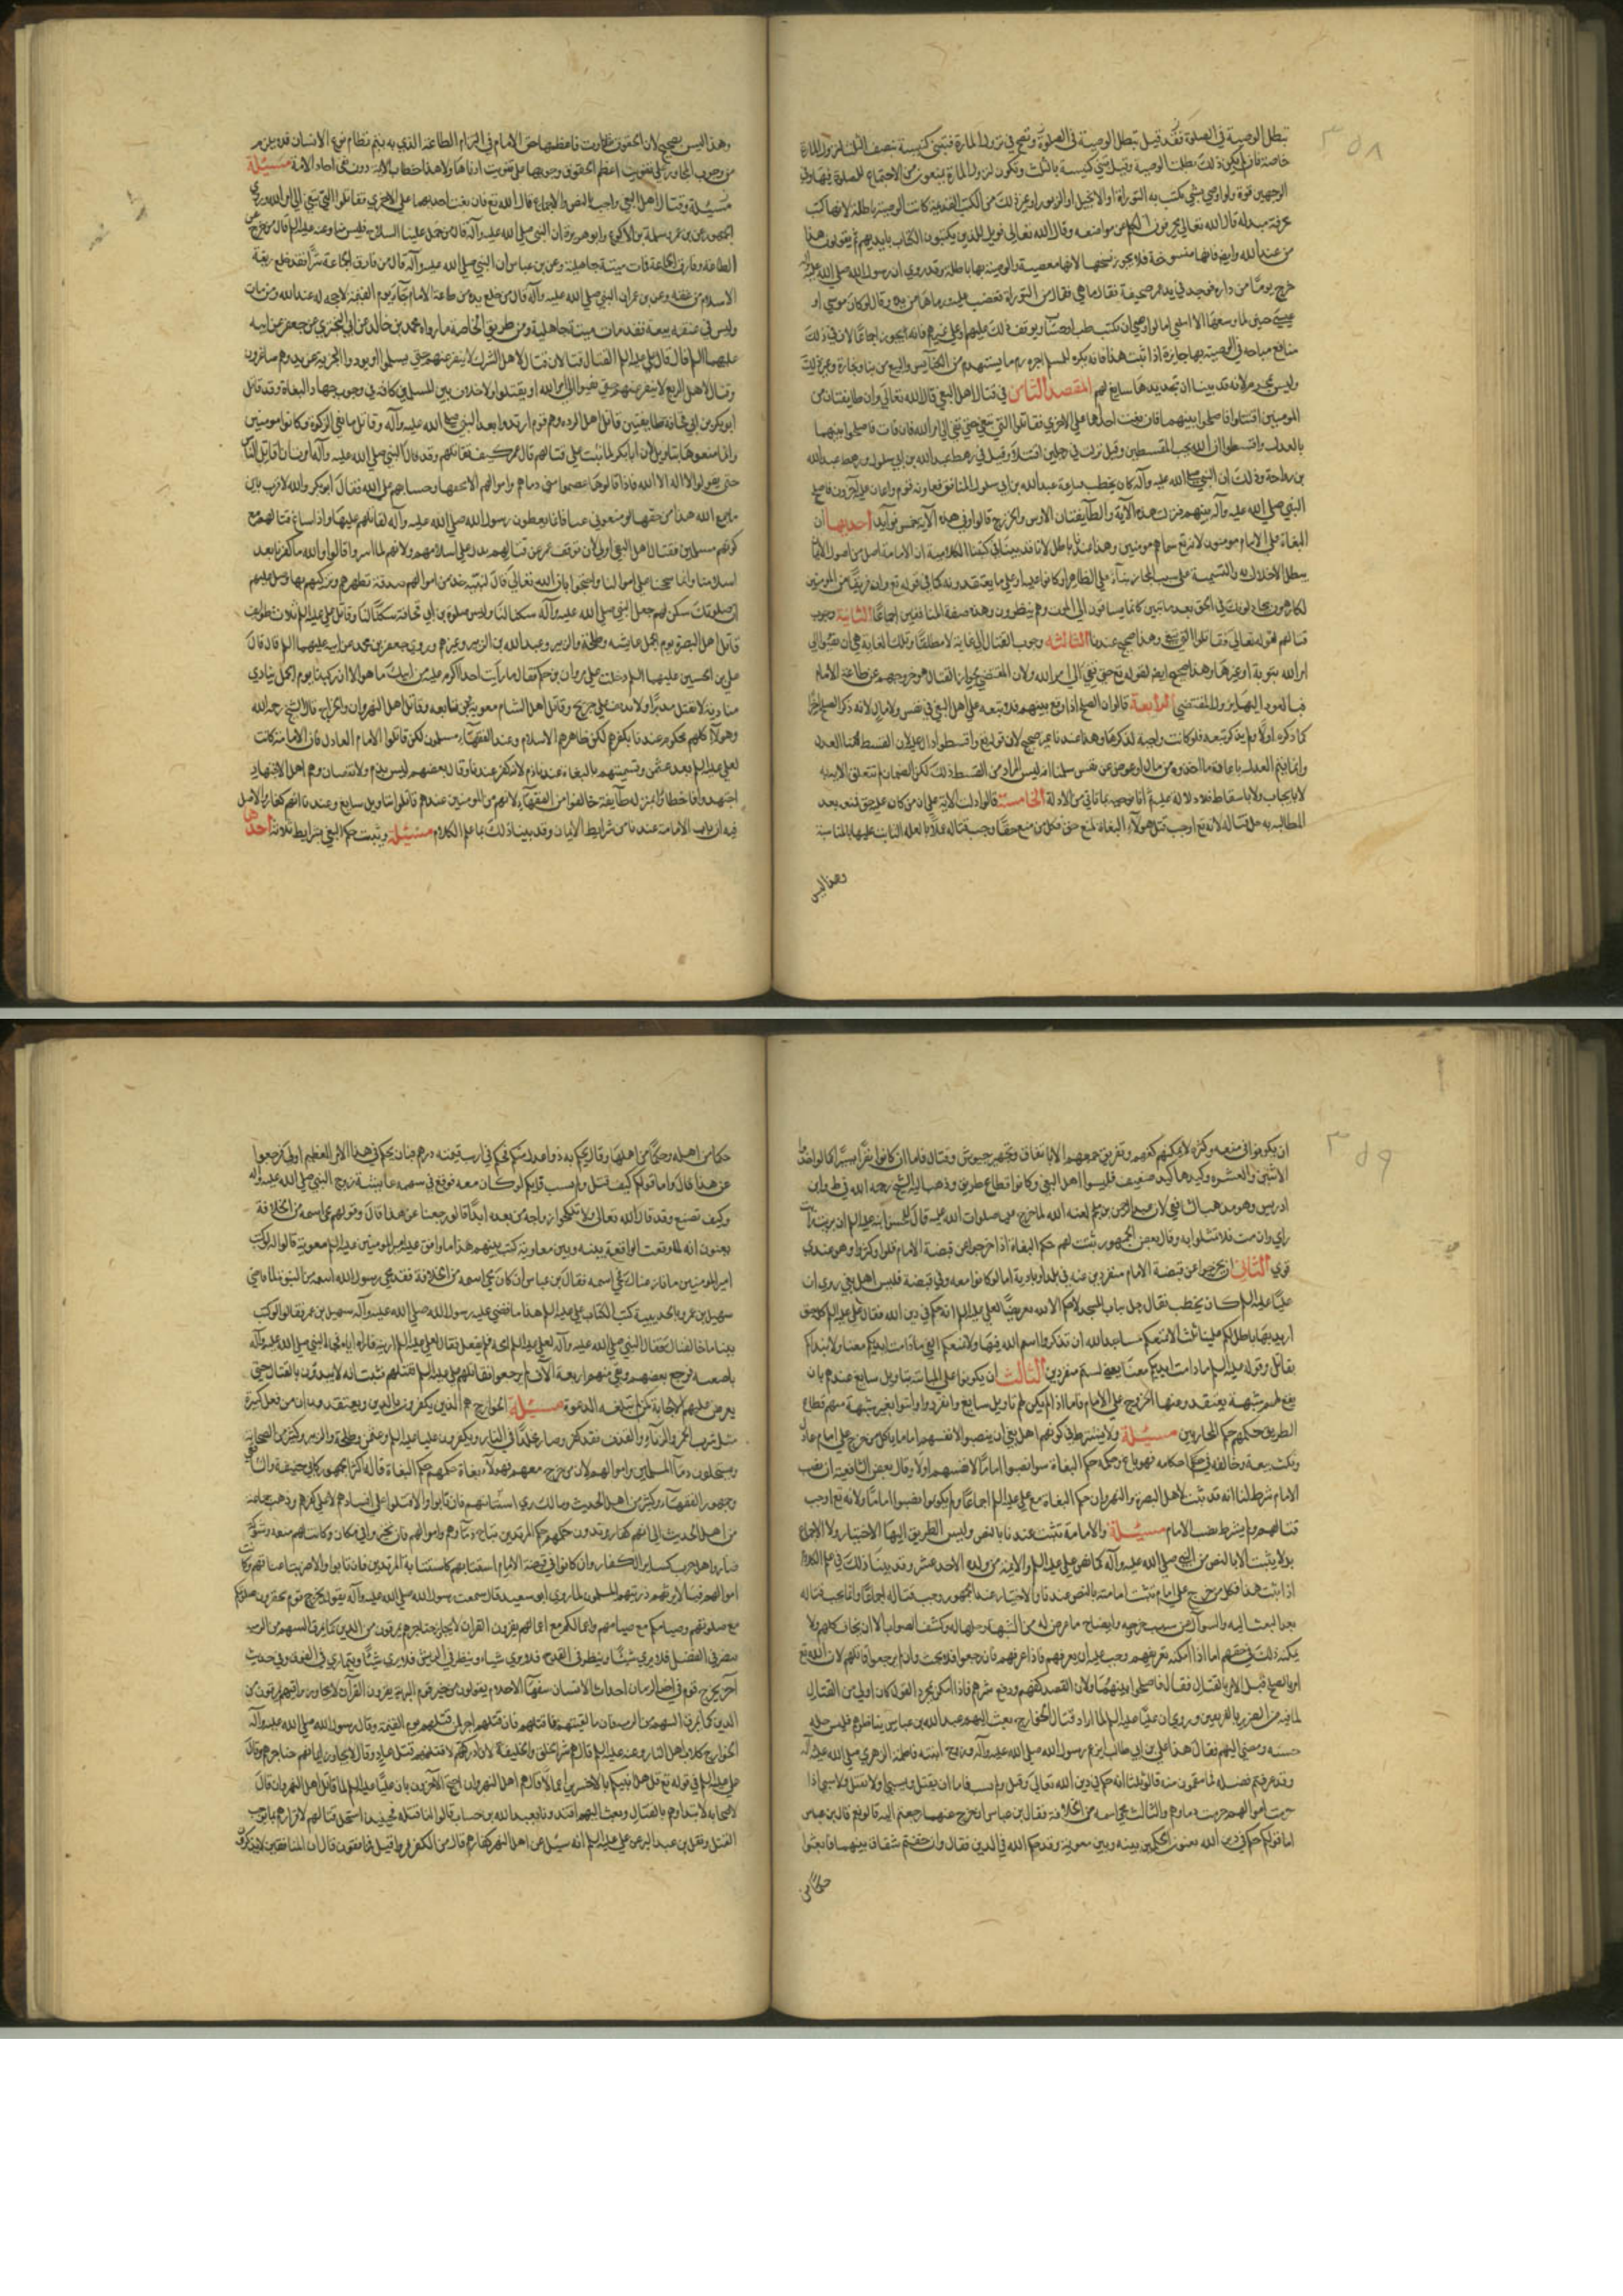 ٣٥٨
تبطل الوصية في الصلوة فقد وقيل تبطل الوصية في الصلوة وتصح في نزول المارة فتبنى كنيسة بنصف الثلث لنزول المارة
خاصة فان لم يكن ذلك بطلت الوصية وقيل تبنى كنيسة بالثلث وتكون لنزول المارة ويمنعون من الاجتماع للصلوة فيها وفي
الوجهين قوة ولو اوصى بشي يكتب به التوراة او الانجيل او الزبور او غير ذلك من الكتب القديمة كانت الوصية باطلة لانها كتب
محرفة مبدلة قال الله تعالى يحرفون الكلم من مواضعه وقال الله تعالى فويل للذين يكتبون الكتاب بايديهم ثم يقولون هذا
من عند الله وايضا فانها منسوخة فلا يجوز نسخها لانها معصية والوصية بها باطلة وقد روي ان رسول الله صلى الله عليه وآله
خرج يوما من داره فوجد في يد عمر صحيفة فقال ما هي فقال من التوراة فغضب عليه ورماها من يده وقال لو كان موسى او
عيسى حيين لما وسعهما الا اتباعي اما لو اوصى ان يكتب طب او حساب ويوقف ذلك عليهم او على غيرهم فانه يجوز اجماعا لان في ذلك
منافع مباحة فالوصية بها جايزة اذا ثبت هذا فانه يكره للمسلم اجرة رم ما يستهدم من الكنايس والبيع من بناء ونجارة وغير ذلك
وليس بمحرم لانه قد بينا ان تجديدها سايغ لهم المقصد الثامن في قتال اهل البغي قال الله تعالى وان طايفتان من
المومنين اقتتلوا فاصلحوا بينهما فان بغت احداهما على الاخرى فقاتلوا التي تبغي حتى تفي الى امر الله فان فات فاصلحوا بينهما
بالعدل واقسطوا ان الله يحب المقسطين وقيل نزلت في رجلين اقتتلا وقيل في رهط عبد الله بن ابي سلول من رهط عبد الله
بن رواحة وذلك ان النبي صلى الله عليه وآله كان يخطب فنازعه عبد الله بن ابي سلول المنافق فعاونه قوم واعان عليه آخرون فاصلح
النبي صلى الله عليه وآله بينهم فنزلت هذه الآية والطايفتان الاوس والخزرج قالوا وفي هذه الآية خمس فوايد احديها ان
البغاة على الامام مومنون لانه تع سماهم مومنين وهذا عندنا باطل لانا قد بينا في كتبنا الكلامية ان الامامة اصل من اصول الايمان
يبطل الاخلال به والتسمية على سبيل المجاز بناء على الظاهر او كانوا عليه او على ما يعتقدونه كما في قوله تع وان فريقا من المومنين
لكارهون يجادلونك في الحق بعد ما تبين كانما يساقون الى الموت وهم ينظرون وهذه صفة المنافقين اجماعا الثانية وجوب
قتالهم لقوله تعالى فقاتلوا التي تبغي وهذا صحيح عندنا الثالثة وجوب القتال الى غاية لا مطلقا وتلك الغاية هي ان تفيئوا الى
امر الله بتوبة او غيرها وهذا صحيح ايضا لقوله تع حتى تفي الى امر الله ولان المقتضي لجواز القتال هو خروجهم عن طاعة الامام
فبالعود اليها يزول المقتضي الرابعة قالوا ان الصلح اذا وقع بينهم فلا تبعة على اهل البغي في نفس ولا مال لانه ذكر الصلح اخيرا
كما ذكره اولا ولم يذكر تبعة فلو كانت واجبة لذكرها وهذا عندنا غير صحيح لان قوله تع واقسطوا دال على
وانما يتم العدل باعادة ما اخذوه من مال او عوض عن نفس سلمنا انه ليس المراد من القسط ذلك لكن الضمان لم تتعلق الاية به
لا بايجاب ولا باسقاط فلا دلالة عليه الخامسة قالوا دلت الاية على ان من كان عليه حق فمنعه بعد
المطالبة به حل قتاله لانه تع اوجب قتل هولاء البغاة لمنع حق فكل من منع حقا وجب قتاله
وهذا ليس
وهذا ليس بصحيح لان الحقوق تفاوتت فاعظمها حق الامام في التزام الطاعة الذي به يتم نظام نوع الانسان فلا يلزم
من وجوب المحاربة على تفويت اعظم الحقوق وجوبها على تفويت ادناها ولا هذا خطاب الائمة دون احاد الامة مسئلة
مسئلة وقتال اهل البغي واجب بالنص والاجماع قال الله تع فان بغت احديهما على الاخرى فقاتلوا التي تبغي الى امر الله وروى
الجمهور عن بن عمر وسلمة بن الاكوع وابو هريرة ان النبي صلى الله عليه وآله قال من حمل علينا السلاح فليس منا وعنه عليه السلم قال من خرج عن
الطاعة وفارق الجماعة فمات ميتة جاهلية وعن بن عباس ان النبي صلى الله عليه وآله قال من فارق الجماعة شبرا فقد خلع ربقة
الاسلام من عنقه وعن بن عمر ان النبي صلى الله عليه وآله قال من خلع يده من طاعة الامام جاء يوم القيمة لا حجة له عند الله ومن مات
وليس في عنقه بيعة فقد مات ميتة جاهلية ومن طريق الخاصة ما رواه محمد بن خالد عن ابي البختري عن جعفر عن ابيه
عليهما السلم قال قال علي عليه السلم القتال قتالان قتال لاهل الشرك لا ينفر عنهم حتى يسلموا او يودوا الجزية عن يد وهم صاغرون
وقتال لاهل الزيغ لا ينفر عنهم حتى يفيئوا الى امر الله او يقتلوا ولا خلاف بين المسلمين كافة في وجوب جهاد البغاة وقد قاتل
ابو بكر بن ابي قحافة طايفتين قاتل اهل الردة وهم قوم ارتدوا بعد النبي صلى الله عليه وآله وقاتل مانعي الزكوة وكانوا مومنين
وانما منعوها بتاويل لان ابا بكر لما ثبت على قتالهم قال عمر كيف تقاتلهم وقد قال النبي صلى الله عليه وآله امرت ان اقاتل الناس
حتى يقولوا لا اله الا الله فاذا قالوها عصموا مني دماهم واموالهم الا بحقها وحسابهم على الله فقال ابو بكر والله لا فرق بين
ما جمع الله هذا من حقها لو منعوني عناقا مما يعطون رسول الله صلى الله عليه وآله لقاتلهم عليها واذا ساغ قتالهم مع
كونهم مسلمين فقتال اهل البغي اولى لان توقف عمر عن قتالهم يدل على اسلامهم ولانهم لما اسروا قالوا والله ما كفرنا بعد
اسلامنا وانما شححنا على اموالنا واحتج لهم بان الله تعالى قال لنبيه خذ من اموالهم صدقة تطهرهم وتزكيهم بها وصل عليهم
ان صلوتك سكن لهم جعل النبي صلى الله عليه وآله سكنا لنا وليس صلوة بن ابي قحافة سكنا لنا وقاتل علي عليه السلم ثلاث طوايف
قاتل اهل البصرة يوم الجمل عايشه وطلحة والزبير وعبد الله بن الزبير وغيرهم وروى جعفر بن محمد عن ابيه عليهما السلم قال قال
علي بن الحسين عليهما السلم دخلت على مروان بن حكم فقال ما رايت احدا اكرم غلبة من ابيك ما هو الا ان ركبنا يوم الجمل ينادي
مناديه لا تقتل مدبرا ولا يدفف على جريح وقاتل اهل الشام معوية ومن تابعه وقاتل اهل النهروان والخوارج قال الشيخ رحمه الله
وهولاء كلهم محكوم عندنا بكفرهم لكن ظاهرهم الاسلام وعند الفقهاء مسلمون لكن قاتلوا الامام العادل فان الامامة كانت
لعلي عليه السلم بعد عثمن وتسميتهم بالبغاة عندنا ذم لانه كفر عندنا وقال بعضهم ليس بذم ولا نقصان وهم اهل الاجتهاد
اجتهدوا فاخطاؤا بمنزلة طايفة خالفوا من الفقهاء لانهم من المومنين عندهم قاتلوا بتاويل سايغ وعندنا انهم كفار بالاصل
الامامة عندنا من شرايط الايمان وقد بينا ذلك بما في علم الكلام مسئلة ويثبت حكم البغي بشرايط ثلاثة احدها
٣٥٩
ان يكونوا في منعة وكثرة لا يمكنهم كفهم وتفريق جمعهم الا بانفاق وتجهيز جيوش وقتال فاما ان كانوا نفرا يسيرا كالواحد و
الاثنين والعشرة وكيدها كيد ضعيف فليسوا اهل البغي وكانوا قطاع طريق وذهب اليه الشيخ رحمه الله في ط وابن
ادريس وهو مذهب الشافعي لان عبد الرحمن بن ملجم لعنه الله لما جرح علي صلوات الله عليه قال للحسن ابنه عليه السلم ان برئت رايت
رايي وان مت فلا تمثلوا به وقال بعض الجمهور يثبت لهم حكم البغاة اذا خرجوا عن قبضة الامام قلوا او كثروا وهو عندي
قوي الثاني ان يخرجوا عن قبضة الامام منفردين عنه في بلد او بادية اما لو كانوا معه وفي قبضته فليس اهل بغي روى ان
عليا عليه السلم كان يخطب فقال رجل بباب المسجد لا حكم الا لله تعريضا لعلي عليه السلم انه حكم في دين الله فقال علي عليه السلم كلمة حق
اريد بها باطل لكم علينا ثلث الا نمنعكم مساجد الله ان تذكروا اسم الله فيها ولا نمنعكم الفي ما دامت ايديكم معنا ولا نبدأكم
بقتال وقوله عليه السلم ما دامت ايديكم معنا يعني لستم منفردين الثالث ان يكونوا على المباينة بتاويل سايغ عندهم بان
يقع لهم شبهة يعتقدون معها الخروج على الامام فاما اذا لم يكن لهم تاويل سايغ وانفردوا وباينوا بغير شبهة منهم قطاع
الطريق حكمهم حكم المحاربين مسئلة ولا يشترط في كونهم اهل بغي ان ينصبوا لانفسهم اماما بل كل من خرج على امام عادل
ونكث بيعة وخالفه في احكامه فهو باغ وحكمه حكم البغاة سواء نصبوا اماما لانفسهم او لا وقال بعض الشافعية ان نصب
الامام شرط لنا انه قد ثبت لاهل البصرة والنهروان حكم البغاة مع علي عليه السلم اجماعا ولم يكونوا نصبوا اماما ولانه تع اوجب
قتالهم ولم يشرط نصب الامام مسئلة والامامة تثبت عندنا بالنص وليس الطريق اليها الاختيار ولا الاجماع
بل لا يثبت الا بالنص من النبي صلى الله عليه وآله كما نص على علي عليه السلم والايمة من ولده الاحد عشر وقد بينا ذلك في علم الكلام
اذا ثبت هذا فكل من خرج على امام تثبت امامته بالنص عندنا والاختيار عند الجمهور وجب قتاله اجماعا وانما يجب قتاله
بعد البعث اليه والسوال عن سبب خروجه وايضاح ما عرض له من الشبهة وحلها له وكشف الصواب الا ان يخاف كلبهم ولا
يمكنه ذلك في حقهم اما اذا امكنه تعريفهم وجب عليه ان يعرفهم فاذا عرفهم فان رجعوا فلا بحث وان لم يرجعوا قاتلهم لان الله تع
امر بالصلح قبل الامر بالقتال فقال فاصلحوا بينهما ولان القصد كفهم ودفع شرهم فاذا امكن بمجرد القول كان اولى من القتال
لما فيه من الضرر بالفريقين وروى ان عليا عليه السلم لما اراد قتال الخوارج بعث اليهم عبد الله بن عباس يناظرهم فلبس حلة
حسنة ومضى اليهم فقال هذا علي بن ابي طالب ابن عم رسول الله صلى الله عليه وآله وزوج ابنته فاطمة الزهرى صلى الله عليه وآله
وقد عرفتم فضله فما تنقمون منه قالوا ثلثا انه حكم في دين الله تعالى وقتل ولم يسب فاما ان يقتل ويسبي او لا يقتل ولا يسبي اذا
حرمت اموالهم حرمت دماوهم والثالث محى اسمه من الخلافة فقال بن عباس ان خرج عنها رجعتم اليه قالوا نعم قال بن عباس
اما قولكم حكم في دين الله يعنون الحكمين بينه وبين معوية وقد حكم الله في الدين فقال وان خفتم شقاق بينهما فابعثوا
حكما من
حكما من اهله وحكما من اهلها وقال يحكم به ذوا عدل منكم فحكم في ارنب قيمته درهم فبان يحكم في هذا الامر العظيم اولى فرجعوا
عن هذا قال واما قولكم كيف قتل ولم يسب فايكم لو كان معه فوقع في سهمه عايشة زوج النبي صلى الله عليه وآله
وكيف تصنع وقد قال الله تعالى ولا تنكحوا ازواجه من بعده ابدا قالوا رجعنا عن هذا قال وقولكم محى اسمه من الخلافة
يعنون انه لما وقعت المواقعة بينه وبين معاوية كتب بينهم هذا ما وافق عليه امير المومنين عليه السلم معوية قالوا له لو كنت
امير المومنين ما نازعناك فمحى اسمه فقال بن عباس ان كان محى اسمه من الخلافة فقد محى رسول الله اسمه من النبوة لما قاضى
سهيل بن عمرو بالحديبية كتب الكتاب علي عليه السلم هذا ما قاضى عليه رسول الله صلى الله عليه وآله سهيل بن عمرو فقالوا لو كنت
نبيا ما خالفناك فقال النبي صلى الله عليه وآله لعلي عليه السلم امحه فلم يفعل فقال لعلي عليه السلم ارنيه فاراه اياه فمحاه النبي صلى الله عليه وآله
باصبعه فرجع بعضهم وبقي منهم اربعة الاف لم يرجعوا فقاتلهم علي عليه السلم فقتلهم فثبت انه لا يبدؤن بالقتال حتى
يعرض عليهم الاجابة لمن لم تبلغه الدعوة مسئلة الخوارج هم الذين يكفرون بالدين ويعتقدون ان من فعل كبيرة
مثل شرب الخمر والزنا والقذف فقد كفر وصار مخلدا في النار ويكفرون عليا عليه السلم وعثمن وطلحة والزبير وكثير من الصحابة
ويستحلون دماء المسلمين واموالهم لان من خرج معهم فهولاء بغاة حكمهم حكم البغاة قاله اكثر الجمهور كابي حنيفة والشافعي
وجمهور الفقهاء وكثير من اهل الحديث ومالك يرى استتابتهم فان تابوا والا قتلوا على افسادهم لا على كفرهم وذهب جماعة
من اهل الحديث الى انهم كفار مرتدون حكمهم حكم المرتدين تباح دماوهم واموالهم فان تحيزوا في مكان وكانت لهم منعة وشوكة
صاروا اهل حرب كساير الكفار وان كانوا في قبضة الامام استتابهم كاستتابة المرتدين فان تابوا والا ضربت اعناقهم وكانت
اموالهم فيئا لا يرثهم ورثتهم المسلمون لما روى ابو سعيد قال سمعت رسول الله صلى الله عليه وآله يقول يخرج قوم تحقرون صلوتكم
مع صلوتهم وصيامكم مع صيامهم واعمالكم مع اعمالهم يقرؤن القران لا يجاوز حناجرهم يمرقون من الدين كما يمرق السهم من الرمية
ينظر في النصل فلا يرى شيئا وينظر في القدح فلا يرى شيئا وينظر في الريش فلا يرى شيئا ويتمارى في الفوق وفي حديث
آخر يخرج قوم في اخر الزمان احداث الاسنان سفهاء الاحلام يقولون من خير قول البرية يقرؤن القرآن لا يجاوز تراقيهم يمرقون من
الدين كما يمرق السهم من الرمية فان ما لقيتهم فاقتلهم فان قتلهم اجر لمن قتلهم يوم القيمة وقال رسول الله صلى الله عليه وآله
الخوارج كلاب اهل النار وعنه عليه السلم قال هم شر الخلق والخليقة لان ادركتهم لاقتلنهم قتل عاد وقال لا يجاوز ايمانهم حناجرهم وقال
علي عليه السلم في قوله تع قل هل ننبئكم بالاخسرين اعمالا قال هم اهل النهروان احتج الآخرون بان عليا عليه السلم لما قاتل اهل النهروان قال
لاصحابه لا تبداوهم بالقتال وبعث اليهم اقيدونا بعبد الله بن خباب قالوا كلنا قتله فحينئذ استحل قتالهم لاقرارهم بما يوجب
القتل ونقل بن عبد البر عن علي عليه السلم انه سئل عن اهل النهر كفار هم قال من الكفر فروا قيل فمنافقون قال ان المنافقين لا يذكرون